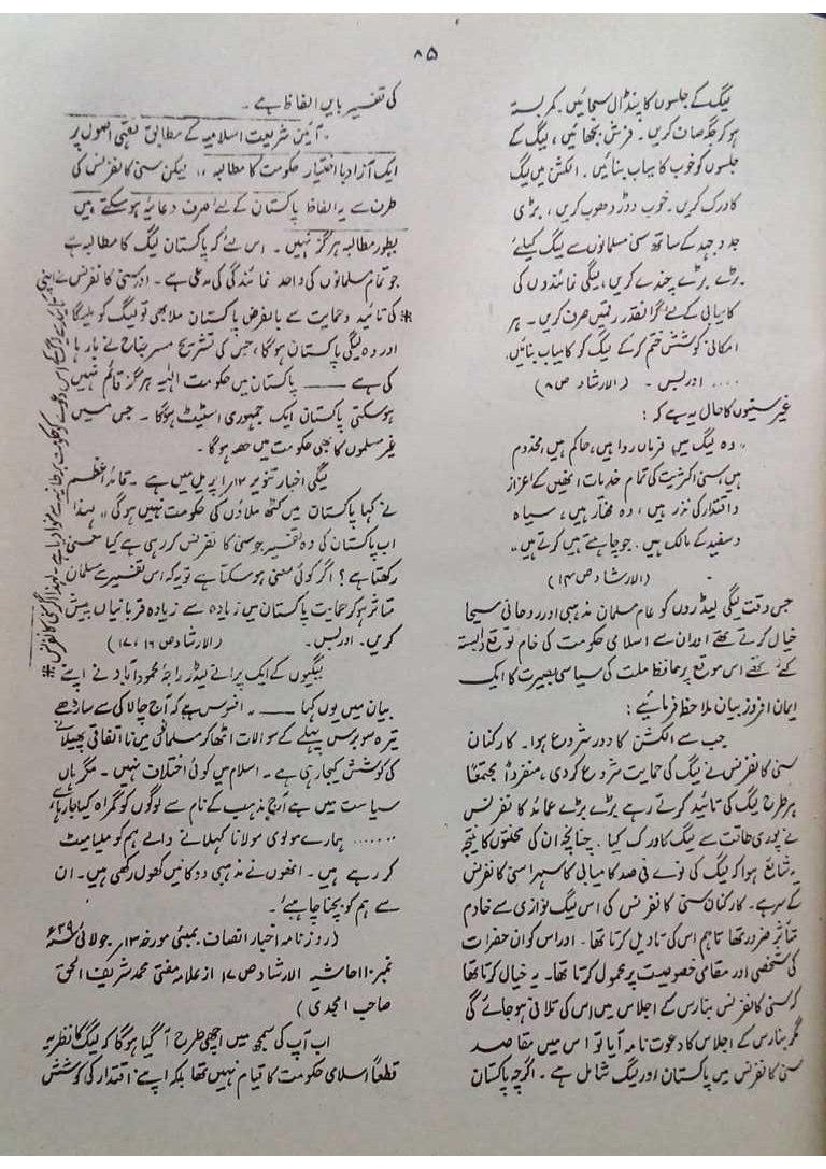 ۸۵
لیگ کے جلسوں کا پنڈال سجائیں۔ کمر بستہ
ہو کر جگہ صاف کریں۔ فرش بچھائیں، لیگ کے
جلسوں کو خوب کامیاب بنائیں۔ الکشن میں لیگ
کا ورک کریں۔ خوب دوڑ دھوپ کریں، بڑی
جد وجہد کے ساتھ سنی مسلمانوں سے لیگ کیلئے
بڑے بڑے چندے کریں، لیگی نمائندوں کی
کامیابی کے لئے گرانقدر رقمیں صرف کریں۔ ہر
امکانی کوشش ختم کرکے لیگ کو کامیاب بنائیں
.... اور بس۔ (الارشاد ص۸)
غیر سنیوں کا حال یہ ہے کہ:
وہ لیگ میں فرماں روا ہیں، حاکم ہیں، مخدوم
ہیں، سنی اکثریت کی تمام خدمات انھیں کے اعزاز
و اقتدار کی نذر ہیں، وہ مختار ہیں، سیاہ
و سفید کے مالک ہیں۔ جو چاہتے ہیں کرتے ہیں۔
(الارشاد ص۱۴)
جس وقت لیگی لیڈروں کو عام مسلمان مذہبی اور روحانی مسیحا
خیال کرتے تھے اور ان سے اسلامی حکومت کی خام توقع وابستہ
کئے تھے اس موقع پر محافظ ملت کی سیاسی بصیرت کا ایک
ایمان افروز بیان ملاحظہ فرمائیے:
جب سے الکشن کا دور شروع ہوا۔ کارکنان
سنی کانفرنس نے لیگ کی حمایت شروع کر دی، منفرداً مجتمعاً
ہر طرح لیگ کی تائید کرتے رہے بڑے بڑے عمائد کانفرنس
نے پوری طاقت سے لیگ کا ورک کیا۔ چنانچہ ان کی محنتوں کا نتیجہ
یہ شائع ہوا کہ لیگ کی نوے فی صد کامیابی کا سہرا سنی کانفرنس
کے سر ہے۔ کارکنان سنی کانفرنس کی اس لیگ نوازی سے خادم
متاثر ضرور تھا تاہم اس کی تاویل کرتا تھا۔ اور اس کو ان حضرات
کی شخصی اور مقامی خصوصیت پر محمول کرتا تھا۔ یہ خیال کرتا تھا
کہ سنی کانفرنس بنارس کے اجلاس میں اس کی تلافی ہو جائے گی
مگر بنارس کے اجلاس کا دعوت نامہ آیا تو اس میں مقاصد
سنی کانفرنس میں پاکستان اور لیگ شامل ہے۔ اگرچہ پاکستان
کی تفسیر بایں الفاظ ہے۔
"آئین شریعت اسلامیہ کے مطابق فقہی اصول پر
ایک آزاد با اختیار حکومت کا مطالبہ" لیکن سنی کانفرنس کی
طرف سے یہ الفاظ پاکستان کے لئے صرف دعائیہ ہو سکتے ہیں
بطور مطالبہ ہرگز نہیں۔ اس لئے کہ پاکستان لیگ کا مطالبہ ہے
جو تمام مسلمانوں کی واحد نمائندگی کی مدعی ہے۔ اور سنی کانفرنس نے اپنی
* کی تائید و حمایت سے بالفرض پاکستان ملا بھی تو لیگ کو ملیگا
اور وہ لیگی پاکستان ہوگا، جس کی تشریح مسٹر جناح نے بارہا
کی ہے ـــــ پاکستان میں حکومت الٰہیہ ہرگز قائم نہیں
ہو سکتی پاکستان ایک جمہوری اسٹیٹ ہوگا۔ جس میں
غیر مسلموں کا بھی حکومت میں حصہ ہوگا۔
لیگی اخبار تنویر ۱۲؍ اپریل میں ہے۔ قائد اعظم
نے کہا پاکستان میں کٹھ ملاؤں کی حکومت نہیں ہوگی" لہٰذا
اب پاکستان کی وہ تفسیر جو سنی کانفرنس کر رہی ہے کیا معنی
رکھتا ہے؟ اگر کوئی معنی ہو سکتا ہے تو یہ کہ اس تفسیر سے مسلمان
متاثر ہو کر حمایت پاکستان میں زیادہ سے زیادہ قربانیاں پیش
کریں۔ اور بس۔ (الارشاد ص۱۶ ۱۷)
لیگیوں کے ایک پرانے لیڈر راجہ محمود آباد نے اپنے
بیان میں یوں کہا ـــــ۔ افسوس ہے کہ آج چالاکی سے ساڑھے
تیرہ سو برس پہلے کے سوالات اٹھا کر مسلمانوں میں نا اتفاقی پھیلانے
کی کوشش کیجا رہی ہے۔ اسلام میں کوئی اختلاف نہیں۔ مگر ہاں
سیاست میں ہے آج مذہب کے نام سے لوگوں کو گمراہ کیا جا رہا ہے
....... ہمارے مولوی مولانا کہلانے والے ہم کو ملیامیٹ
کر رہے ہیں۔ انھوں نے مذہبی دوکانیں کھول رکھی ہیں۔ ان
سے ہم کو بچنا چاہیئے۔
(روزنامہ اخبار انصاف بمبئی مورخہ ۱۳؍ جولائی ۳۹ء
نمبر ۱۰ حاشیہ الارشاد ص۱۷ از علامہ مفتی محمد شریف الحق
صاحب امجدی)
اب آپ کی سمجھ میں اچھی طرح آ گیا ہوگا کہ لیگ کا نظریہ
قطعاً اسلامی حکومت کا قیام نہیں تھا بلکہ اپنے اقتدار کی کوشش